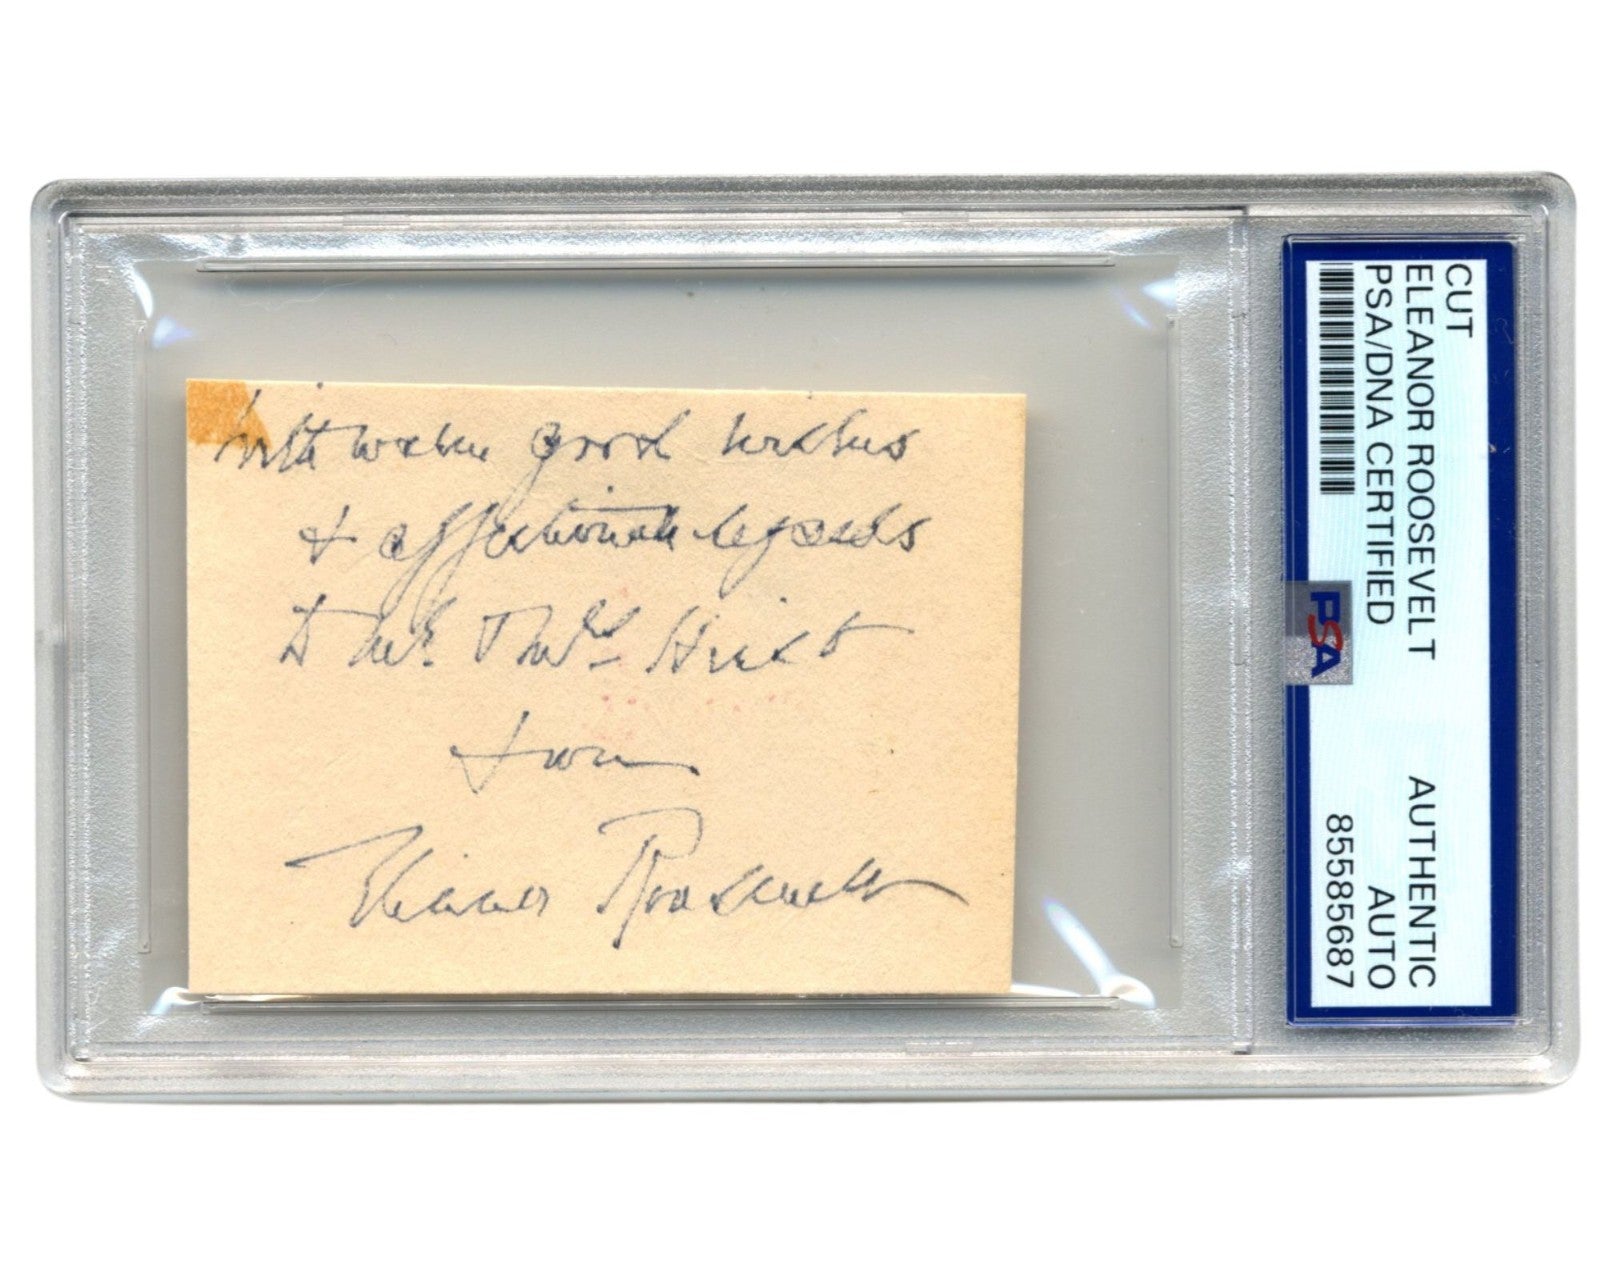 With warm good wishes
& affectionate regards
to Mr. Thos Hirst
from
Eleanor Roosevelt
CUT
ELEANOR ROOSEVELT AUTHENTIC
PSA/DNA CERTIFIED AUTO
85585687
PSA